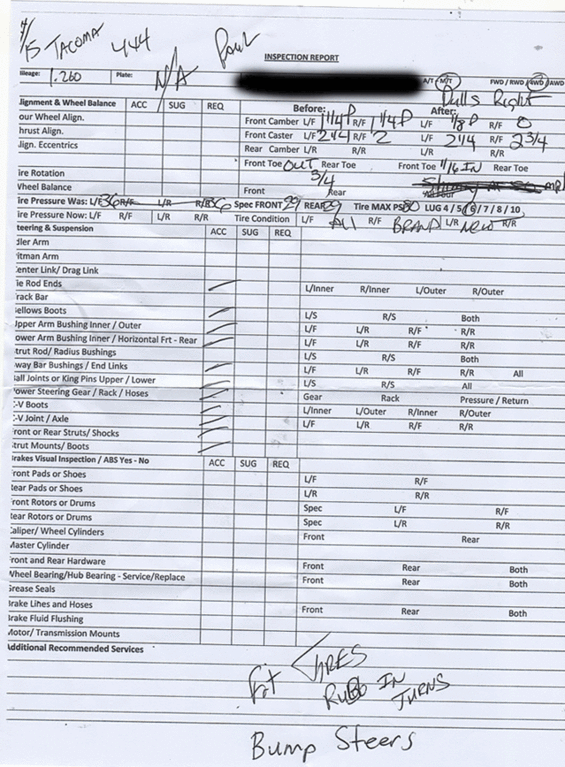 15 TACOMA 444 Paul
INSPECTION REPORT
Mileage: 1.260 Plate: N/A A/T M/T FWD / RWD 4WD AWD
Pulls Right
Alignment & Wheel Balance ACC SUG REQ Before: After:
our Wheel Align. Front Camber L/F 1/4 P R/F 1 1/4 P L/F 1/8 P R/F 0
hrust Align. Front Caster L/F 2 1/4 R/F 2 L/F 2 1/4 R/F 2 3/4
lign. Eccentrics Rear Camber L/R R/R L/R R/R
Front Toe OUT 3/4 Rear Toe Front Toe 1/16 IN Rear Toe
ire Rotation
Wheel Balance Front Rear
ire Pressure Was: L/F 36 R/F L/R R/R 36 Spec FRONT 29 REAR 29 Tire MAX PSI 80 LUG 4 / 5 / 6 / 7 / 8 / 10
ire Pressure Now: L/F R/F L/R R/R Tire Condition L/F R/F L/R R/R ALL BRAND NEW
teering & Suspension ACC SUG REQ
dler Arm
itman Arm
enter Link/ Drag Link
ie Rod Ends L/Inner R/Inner L/Outer R/Outer
rack Bar
ellows Boots L/S R/S Both
pper Arm Bushing Inner / Outer L/F L/R R/F R/R
ower Arm Bushing Inner / Horizontal Frt - Rear L/F L/R R/F R/R
trut Rod/ Radius Bushings L/S R/S Both
way Bar Bushings / End Links L/F L/R R/F R/R All
all Joints or King Pins Upper / Lower L/S R/S All
ower Steering Gear / Rack / Hoses Gear Rack Pressure / Return
-V Boots L/Inner L/Outer R/Inner R/Outer
-V Joint / Axle L/F L/R R/F R/R
ront or Rear Struts/ Shocks
trut Mounts/ Boots
rakes Visual Inspection / ABS Yes - No ACC SUG REQ
ront Pads or Shoes L/F R/F
ear Pads or Shoes L/R R/R
ront Rotors or Drums Spec L/F R/F
ear Rotors or Drums Spec L/R R/R
aliper/ Wheel Cylinders Front Rear
aster Cylinder
ront and Rear Hardware Front Rear Both
heel Bearing/Hub Bearing - Service/Replace Front Rear Both
rease Seals
rake Lines and Hoses Front Rear Both
rake Fluid Flushing
otor/ Transmission Mounts
dditional Recommended Services
Frt TIRES
RUBB IN
TURNS
Bump Steers